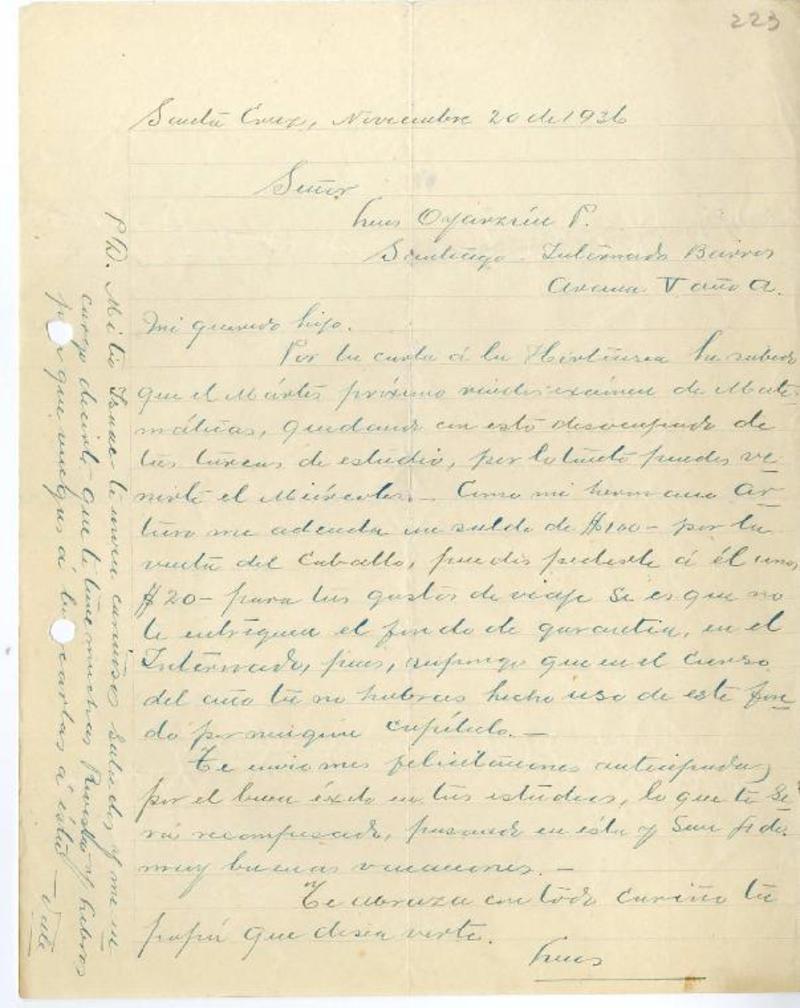 223
Santa Cruz, Noviembre 20 de 1936
Señor
Luis Oyarzún P.
Santiago - Internado Barros
Arana V año A.
Mi querido hijo.
Por tu carta á la Hortensia he sabido
que el Mártes próximo rindes exámen de Mate-
máticas, quedando con esto desocupado de
tus tareas de estudio, por lo tanto puedes ve-
nirte el Miércoles. - Como mi hermano Ar-
turo me adeuda un saldo de $100 - por la
venta del Caballo, puedes pedirle á él unos
$20 - para tus gastos de viaje si es que no
te entreguen el fondo de garantía, en el
Internado, pues, supongo que en el curso
del año tú no habras hecho uso de este fon-
do por ningun capítulo. -
Te envio mis felicitaciones anticipadas
por el buen éxito en tus estudios, lo que te se-
rá recompensado, pasando en ésta y San
muy buenas vacaciones. -
Te abraza con todo cariño tu
papá que desea verte.
Luis
P.D. Mi tio Isaac te envia cariñosos saludos y me en-
carga decirte que te tiene muchas Revistas y libros
para que vengas á ésta - Vale